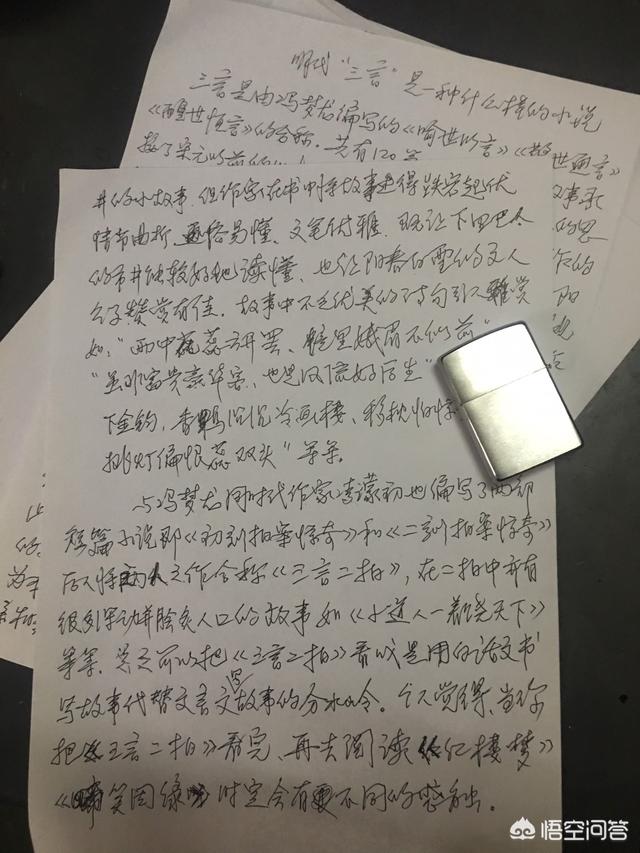 明代"三言"是一种什么样的小说
三言是由冯梦龙编写的《喻世明言》《警世通言》
《醒世恒言》的合称。共有120篇
接了宋元以前的
事录
的思
作的
阳
井的小故事,但作家在书中将故事写得跌宕起伏
情节曲折,通俗易懂、文笔优雅,既让下里巴人
的市井能较好地读懂,也让阳春白雪的文人
公子赞赏有佳。故事中不乏优美的诗句引人难赏
如:"雨中花蕊方开罢、镜里娥眉不似前"
"虽非富贵豪华客,也是风流好后生"
下金钩,香鸭沉沉冷画楼、移枕怕惊
挑灯偏恨蕊双头"等等。
与冯梦龙同时代作家凌濛初也编写了两部
短篇小说即《初刻拍案惊奇》和《二刻拍案惊奇》
后人将两人之作合称《三言二拍》,在二拍中亦有
很多生动并脍炙人口的故事如《小道人一着饶天下》
等等,吴之前以把《三言二拍》看成是用白话文书
写故事代替文言文写故事的分水岭。个人觉得,当你
把《三言二拍》看完,再去阅读《红楼梦》
《啼笑因缘》时定会有更不同的感触。
悟空问答